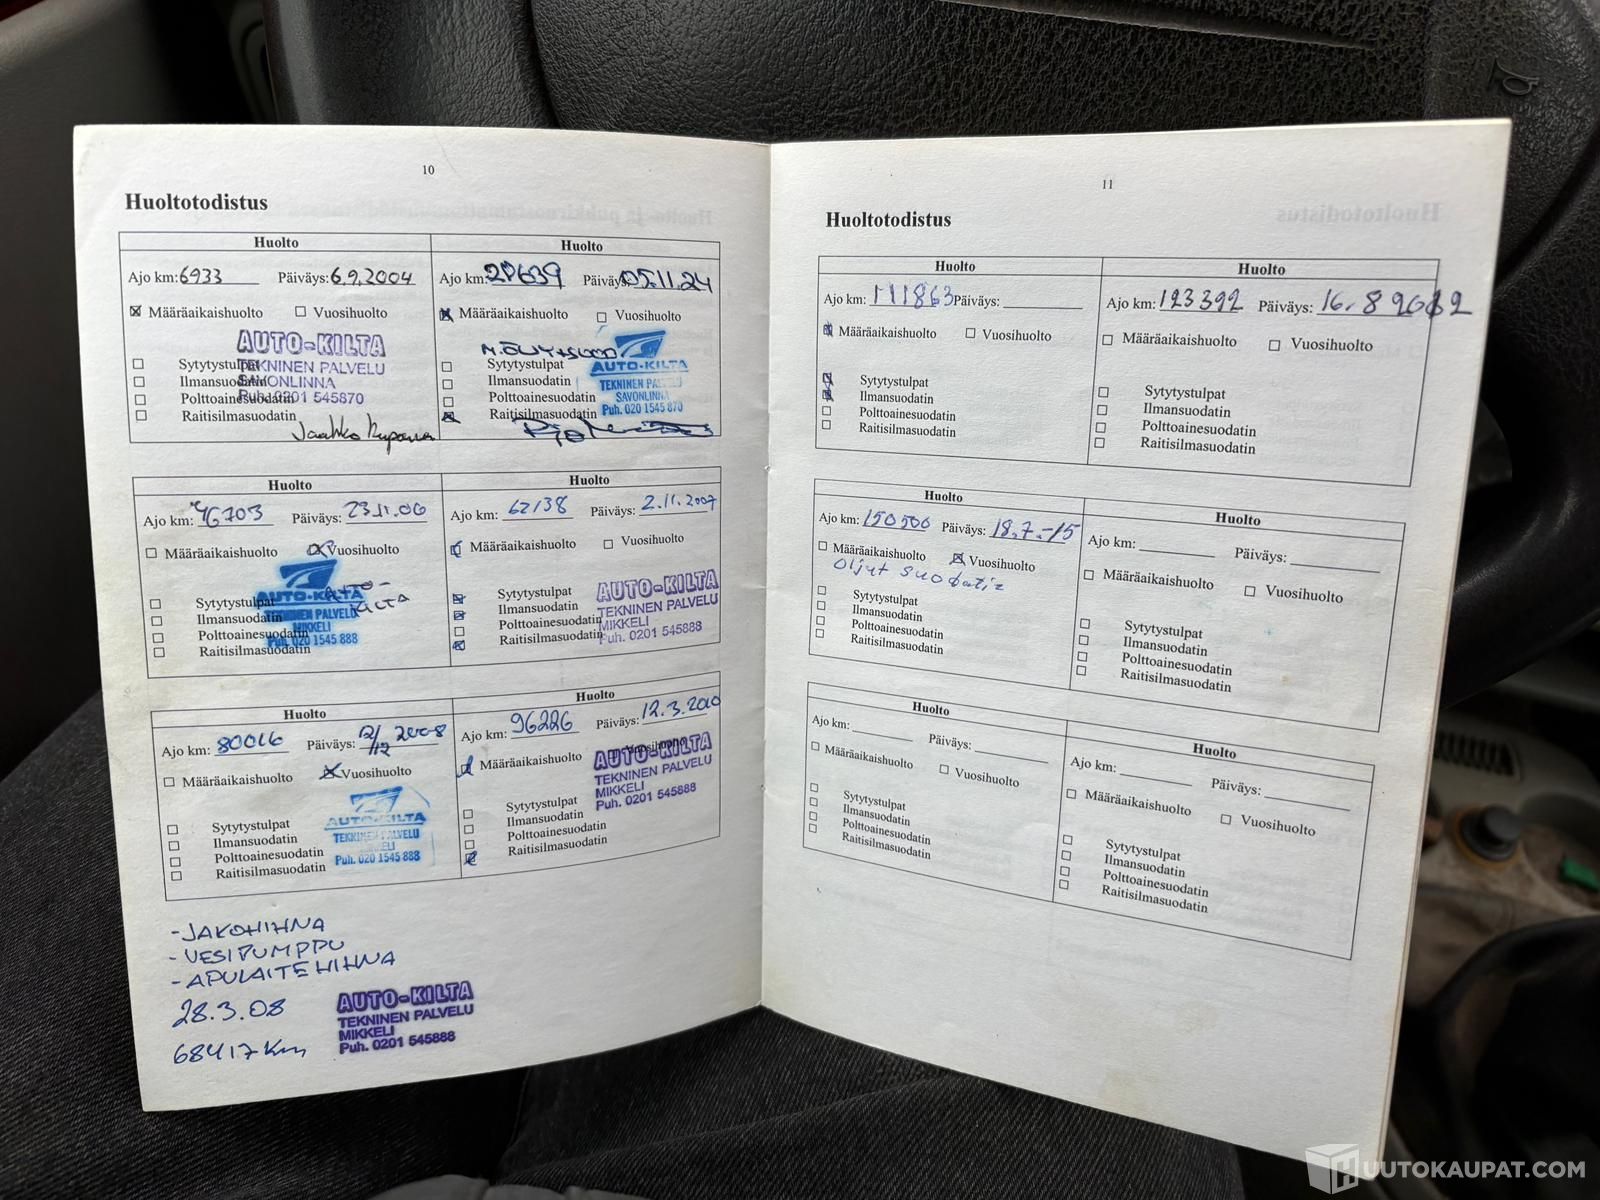 10
Huoltotodistus
Huolto
Ajo km: 6933 Päiväys: 6.9.2004
Määräaikaishuolto Vuosihuolto
AUTO-KILTA
TEKNINEN PALVELU
SAVONLINNA
Puh. 0201 545870
Sytytystulpat
Ilmansuodatin
Polttoainesuodatin
Raitisilmasuodatin
Huolto
Ajo km: Päiväys: 05.11.24
Määräaikaishuolto Vuosihuolto
AUTO-KILTA
TEKNINEN PALVELU
SAVONLINNA
Puh. 020 1545 870
Sytytystulpat
Ilmansuodatin
Polttoainesuodatin
Raitisilmasuodatin
Huolto
Ajo km: 46703 Päiväys: 23.11.06
Määräaikaishuolto Vuosihuolto
AUTO-KILTA
AUTO-KILTA
TEKNINEN PALVELU
MIKKELI
Puh. 020 1545 888
Sytytystulpat
Ilmansuodatin
Polttoainesuodatin
Raitisilmasuodatin
Huolto
Ajo km: 62138 Päiväys: 2.11.2007
Määräaikaishuolto Vuosihuolto
AUTO-KILTA
TEKNINEN PALVELU
MIKKELI
Puh. 0201 545888
Sytytystulpat
Ilmansuodatin
Polttoainesuodatin
Raitisilmasuodatin
Huolto
Ajo km: 80016 Päiväys: 12/12 2008
Määräaikaishuolto Vuosihuolto
AUTO-KILTA
TEKNINEN PALVELU
MIKKELI
Puh. 020 1545 888
Sytytystulpat
Ilmansuodatin
Polttoainesuodatin
Raitisilmasuodatin
Huolto
Ajo km: 96226 Päiväys: 12.3.2010
Määräaikaishuolto Vuosihuolto
AUTO-KILTA
TEKNINEN PALVELU
MIKKELI
Puh. 0201 545888
Sytytystulpat
Ilmansuodatin
Polttoainesuodatin
Raitisilmasuodatin
- JAKOHIHNA
- VESIPUMPPU
- APULAITEHIHNA
28.3.08
68417 km
AUTO-KILTA
TEKNINEN PALVELU
MIKKELI
Puh. 0201 545888
11
Huoltotodistus
Huolto
Ajo km: 111863 Päiväys:
Määräaikaishuolto Vuosihuolto
Sytytystulpat
Ilmansuodatin
Polttoainesuodatin
Raitisilmasuodatin
Huolto
Ajo km: 123392 Päiväys: 16.8 2012
Määräaikaishuolto Vuosihuolto
Sytytystulpat
Ilmansuodatin
Polttoainesuodatin
Raitisilmasuodatin
Huolto
Ajo km: 150500 Päiväys: 18.7.-15
Määräaikaishuolto Vuosihuolto
Öljyt suodatin
Sytytystulpat
Ilmansuodatin
Polttoainesuodatin
Raitisilmasuodatin
Huolto
Ajo km: Päiväys:
Määräaikaishuolto Vuosihuolto
Sytytystulpat
Ilmansuodatin
Polttoainesuodatin
Raitisilmasuodatin
Huolto
Ajo km: Päiväys:
Määräaikaishuolto Vuosihuolto
Sytytystulpat
Ilmansuodatin
Polttoainesuodatin
Raitisilmasuodatin
Huolto
Ajo km: Päiväys:
Määräaikaishuolto Vuosihuolto
Sytytystulpat
Ilmansuodatin
Polttoainesuodatin
Raitisilmasuodatin
HUUTOKAUPAT.COM